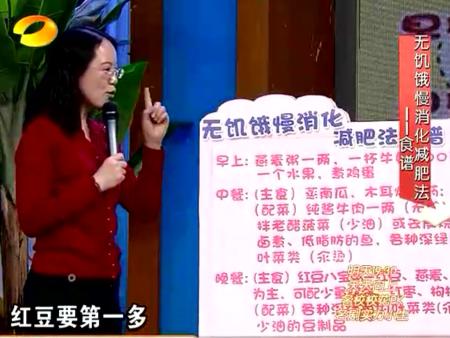 无饥饿慢消化
减肥法 谱
早上: 燕麦粥一两、一杯牛
一个水果、煮鸡蛋
中餐: (主食) 蒸南瓜、木耳
(配菜) 纯酱牛肉一两 (
拌老醋菠菜 (少油) 或去
卤煮、低脂肪的鱼、各种深绿
叶菜类 (汆烫)
晚餐: (主食) 红豆八宝 红豆、燕麦、
为主, 可配少量 红枣、枸
(配菜) 各种 叶菜类 (汆
少油的豆制品
无饥饿慢消化减肥法
——食谱
红豆要第一多